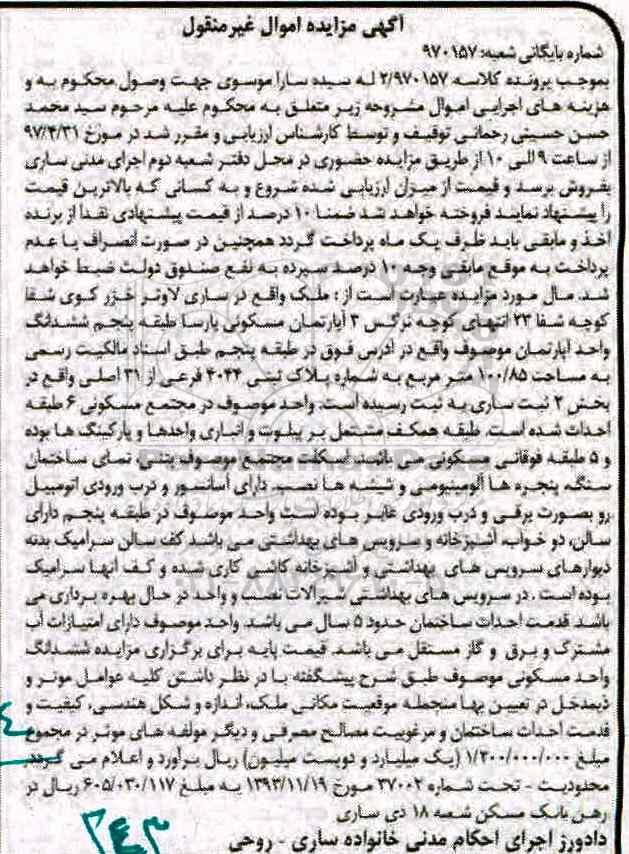 آگهی مزایده اموال غیرمنقول
شماره بایگانی شعبه: ۹۷۰۱۵۷
بموجب پرونده کلاسه ۲/۹۷۰۱۵۷ له سیده سارا موسوی جهت وصول محکوم به و
هزینه های اجرایی اموال مشروحه زیر متعلق به محکوم علیه مرحوم سید محمد
حسن حسینی رحمانی توقیف و توسط کارشناس ارزیابی و مقرر شد در مورخ ۹۷/۴/۳۱
از ساعت ۹ الی ۱۰ از طریق مزایده حضوری در محل دفتر شعبه دوم اجرای مدنی ساری
بفروش برسد و قیمت از میزان ارزیابی شده شروع و به کسانی که بالاترین قیمت
را پیشنهاد نمایند فروخته خواهد شد ضمنا ۱۰ درصد از قیمت پیشنهادی نقدا از برنده
اخذ و مابقی باید ظرف یک ماه پرداخت گردد همچنین در صورت انصراف یا عدم
پرداخت به موقع مابقی وجه ۱۰ درصد سپرده به نفع صندوق دولت ضبط خواهد
شد. مال مورد مزایده عبارت است از : ملک واقع در ساری لاوتر خزر کوی شفا
کوچه شفا ۲۳ انتهای کوچه نرگس ۳ آپارتمان مسکونی پارسا طبقه پنجم ششدانگ
واحد آپارتمان موصوف واقع در آدرس فوق در طبقه پنجم طبق اسناد مالکیت رسمی
به مساحت ۱۰۰/۸۵ متر مربع به شماره پلاک ثبتی ۴۰۴۴ فرعی از ۳۱ اصلی واقع در
بخش ۲ ثبت ساری به ثبت رسیده است. واحد موصوف در مجتمع مسکونی ۶ طبقه
احداث شده است. طبقه همکف مشتمل بر پیلوت و انباری واحدها و پارکینگ ها بوده
و ۵ طبقه فوقانی مسکونی می باشد. اسکلت مجتمع موصوف بتنی، نمای ساختمان
سنگ، پنجره ها آلومینیومی و شیشه ها نصب، دارای آسانسور و درب ورودی اتومبیل
رو بصورت برقی و درب ورودی عابر بوده است واحد موصوف در طبقه پنجم دارای
سالن، دو خواب، آشپزخانه و سرویس های بهداشتی می باشد کف سالن سرامیک بدنه
دیوارهای سرویس های بهداشتی و آشپزخانه کاشی کاری شده و کف آنها سرامیک
بوده است . در سرویس های بهداشتی شیرآلات نصب و واحد در حال بهره برداری می
باشد قدمت احداث ساختمان حدود ۵ سال می باشد. واحد موصوف دارای امتیازات آب
مشترک و برق و گاز مستقل می باشد. قیمت پایه برای برگزاری مزایده ششدانگ
واحد مسکونی موصوف طبق شرح پیشگفته با در نظر داشتن کلیه عوامل موثر و
ذیمدخل در تعیین بها منجمله موقعیت مکانی ملک، اندازه و شکل هندسی، کیفیت و
قدمت احداث ساختمان و مرغوبیت مصالح مصرفی و دیگر مولفه های موثر در مجموع
مبلغ ۱/۲۰۰/۰۰۰/۰۰۰ (یک میلیارد و دویست میلیون) ریال برآورد و اعلام می گردد.
محدودیت - تحت شماره ۳۷۰۰۲ مورخ ۱۳۹۳/۱۱/۱۹ به مبلغ ۶۰۵/۰۳۰/۱۱۷ ریال در
رهن بانک مسکن شعبه ۱۸ دی ساری
دادورز اجرای احکام مدنی خانواده ساری - روحی